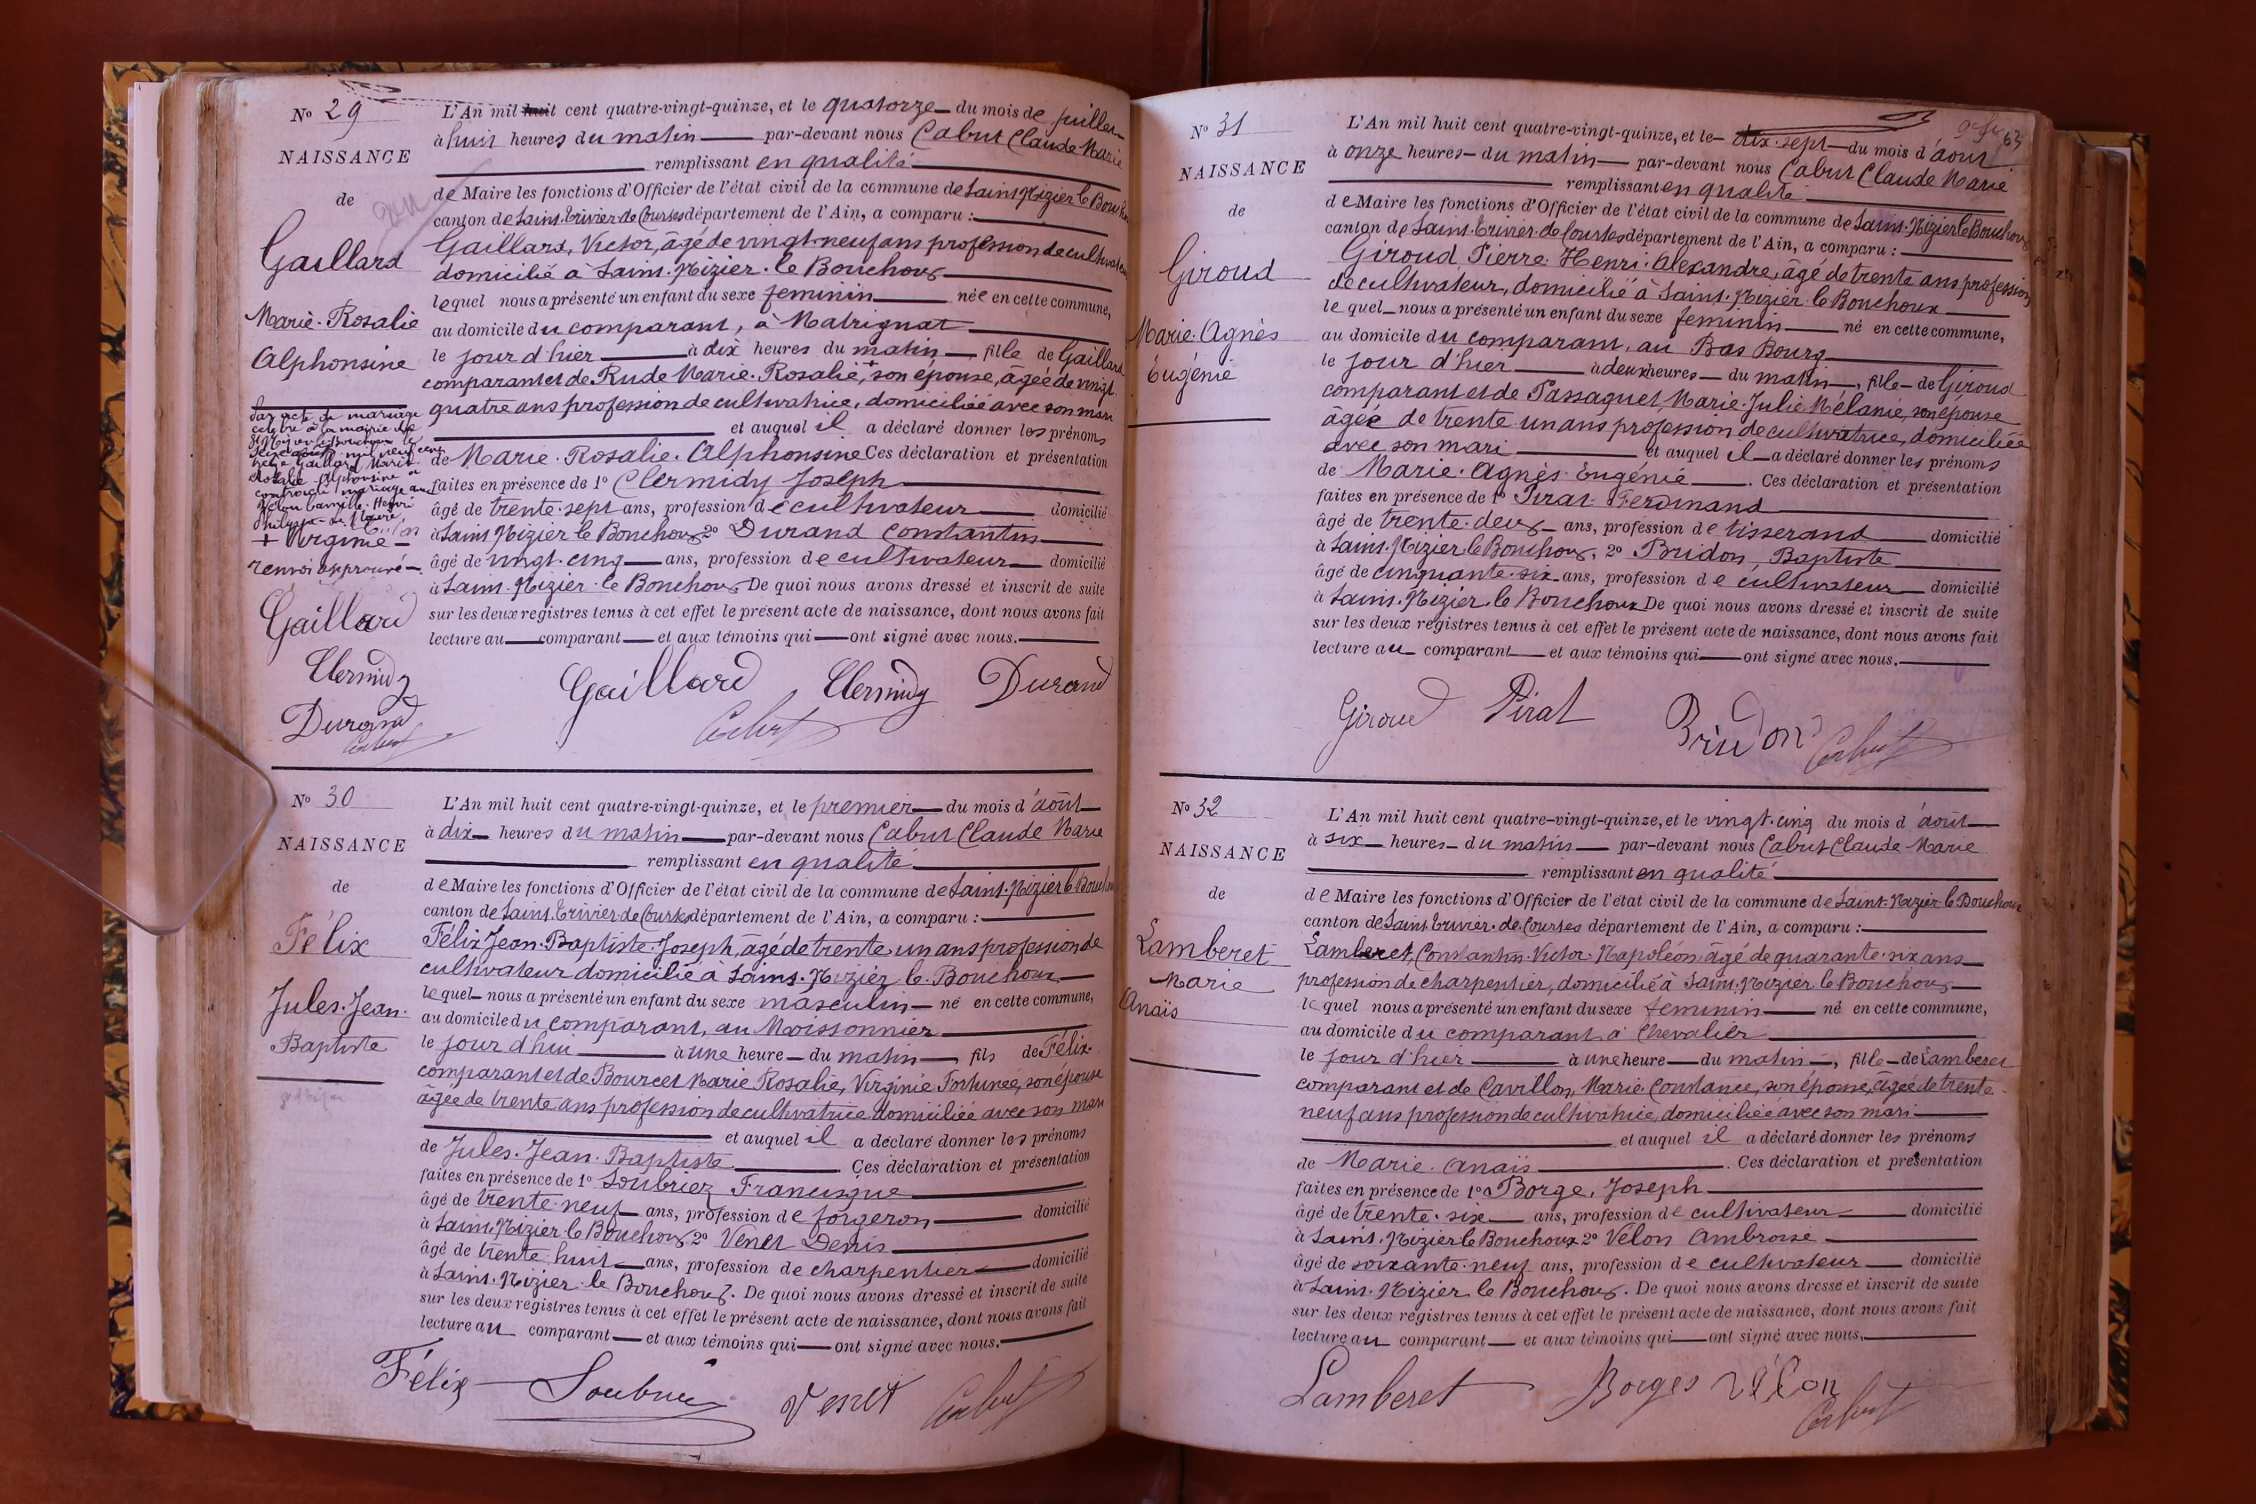 No 29
NAISSANCE
de
Gaillard
Marie-Rosalie
Alphonsine
Par acte de mariage
célébré à la mairie de
St Nizier le Bouchoux le
mil neuf cent
Gaillard Marie
Rosalie Alphonsine a
contracté mariage avec
Vélon Camille Henri
+ Virginie
renvoi approuvé
Gaillard
Clermidy
Durand
Cabut
L'An mil huit cent quatre-vingt-quinze, et le quatorze du mois de juillet
à huit heures du matin par-devant nous Cabut Claude Marie
remplissant en qualité
de Maire les fonctions d'Officier de l'état civil de la commune de Saint-Nizier le Bouchoux
canton de Saint-Trivier-de-Courtes département de l'Ain, a comparu :
Gaillard, Victor, âgé de vingt-neuf ans profession de cultivateur
domicilié à Saint-Nizier-le Bouchoux
lequel nous a présenté un enfant du sexe féminin née en cette commune,
au domicile du comparant, à Matrignat
le jour d'hier à dix heures du matin, fille de Gaillard
comparant et de Rude Marie-Rosalie, + son épouse, âgée de vingt-
quatre ans profession de cultivatrice, domiciliée avec son mari
et auquel il a déclaré donner les prénoms
de Marie-Rosalie-Alphonsine Ces déclaration et présentation
faites en présence de 1o Clermidy Joseph
âgé de trente-sept ans, profession de cultivateur domicilié
à Saint Nizier le Bouchoux 2o Durand Constantin
âgé de vingt-cinq ans, profession de cultivateur domicilié
à Saint-Nizier-le Bouchoux De quoi nous avons dressé et inscrit de suite
sur les deux registres tenus à cet effet le présent acte de naissance, dont nous avons fait
lecture au comparant et aux témoins qui ont signé avec nous.
Gaillard Clermidy Durand
Cabut
No 30
NAISSANCE
de
Félix
Jules-Jean-
Baptiste
L'An mil huit cent quatre-vingt-quinze, et le premier du mois d'août
à dix heures du matin par-devant nous Cabut Claude Marie
remplissant en qualité
de Maire les fonctions d'Officier de l'état civil de la commune de Saint-Nizier le Bouchoux
canton de Saint-Trivier-de-Courtes département de l'Ain, a comparu :
Félix Jean-Baptiste-Joseph, âgé de trente-un ans profession de
cultivateur domicilié à Saint-Nizier le Bouchoux
lequel nous a présenté un enfant du sexe masculin né en cette commune,
au domicile du comparant, au Moissonnier
le jour d'hui à une heure du matin, fils de Félix
comparant et de Bourcet Marie Rosalie, Virginie Fortunée, son épouse
âgée de trente ans profession de cultivatrice domiciliée avec son mari
et auquel il a déclaré donner les prénoms
de Jules-Jean-Baptiste Ces déclaration et présentation
faites en présence de 1o Soubriez Francisque
âgé de trente-neuf ans, profession de forgeron domicilié
à Saint-Nizier le Bouchoux 2o Venet Denis
âgé de trente-huit ans, profession de charpentier domicilié
à Saint-Nizier-le Bouchoux. De quoi nous avons dressé et inscrit de suite
sur les deux registres tenus à cet effet le présent acte de naissance, dont nous avons fait
lecture au comparant et aux témoins qui ont signé avec nous.
Félix Venet Cabut
No 31
NAISSANCE
de
Giroud
Marie-Agnès
Eugénie
63
L'An mil huit cent quatre-vingt-quinze, et le dix-sept du mois d'août
à onze heures du matin par-devant nous Cabut Claude Marie
remplissant en qualité
de Maire les fonctions d'Officier de l'état civil de la commune de Saint-Nizier le Bouchoux
canton de Saint-Trivier-de-Courtes département de l'Ain, a comparu :
Giroud Pierre-Henri-Alexandre, âgé de trente ans profession
de cultivateur, domicilié à Saint-Nizier le Bouchoux
le quel nous a présenté un enfant du sexe féminin né en cette commune,
au domicile du comparant, au Bas Bourg
le jour d'hier à deux heures du matin, fille de Giroud
comparant et de Passaquet, Marie-Julie Mélanie, son épouse
âgée de trente-un ans profession de cultivatrice, domiciliée
avec son mari et auquel il a déclaré donner les prénoms
de Marie-Agnès-Eugénie. Ces déclaration et présentation
faites en présence de 1o Pirat Ferdinand
âgé de trente-deux ans, profession de tisserand domicilié
à Saint-Nizier le Bouchoux. 2o Bridon, Baptiste
âgé de cinquante-six ans, profession de cultivateur domicilié
à Saint-Nizier, le Bouchoux De quoi nous avons dressé et inscrit de suite
sur les deux registres tenus à cet effet le présent acte de naissance, dont nous avons fait
lecture au comparant et aux témoins qui ont signé avec nous.
Giroud Pirat Bridon Cabut
No 32
NAISSANCE
de
Lamberet
Marie
Anaïs
L'An mil huit cent quatre-vingt-quinze, et le vingt-cinq du mois d'août
à six heures du matin par-devant nous Cabut Claude-Marie
remplissant en qualité
de Maire les fonctions d'Officier de l'état civil de la commune de Saint-Nizier-le Bouchoux
canton de Saint Trivier-de-Courtes département de l'Ain, a comparu :
Lamberet, Constantin-Victor-Napoléon âgé de quarante-six ans
profession de charpentier, domicilié à Saint-Nizier le Bouchoux
le quel nous a présenté un enfant du sexe féminin né en cette commune,
au domicile du comparant à Chevalier
le jour d'hier à une heure du matin, fille de Lamberet
comparant et de Cavillon, Marie Constance, son épouse, âgée de trente-
neuf ans profession de cultivatrice, domiciliée avec son mari
et auquel il a déclaré donner les prénoms
de Marie-Anaïs. Ces déclaration et présentation
faites en présence de 1o Borge, Joseph
âgé de trente-six ans, profession de cultivateur domicilié
à Saint-Nizier le Bouchoux 2o Vélon Ambroise
âgé de soixante-neuf ans, profession de cultivateur domicilié
à Saint-Nizier le Bouchoux. De quoi nous avons dressé et inscrit de suite
sur les deux registres tenus à cet effet le présent acte de naissance, dont nous avons fait
lecture au comparant et aux témoins qui ont signé avec nous.
Lamberet Borges Vélon
Cabut